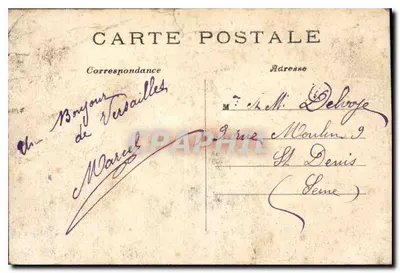 CARTE POSTALE
Correspondance
Adresse
Un Bonjour
de Versailles
Marcel
Mr et M. Delvoye
9 rue Moulin 9
St Denis
(Seine)
CARTAPHILE